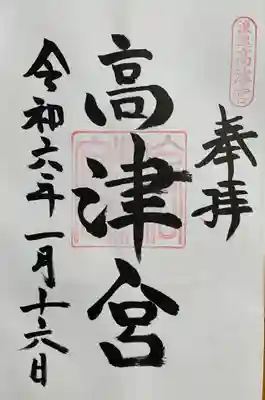 奉拝
高津宮
令和六年一月十六日